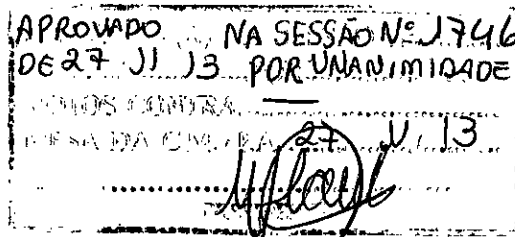 APROVADO NA SESSÃO Nº 1746
DE 27 11 13 POR UNANIMIDADE
VOTOS CONTRA
MESA DA CÂMARA 27 11 13